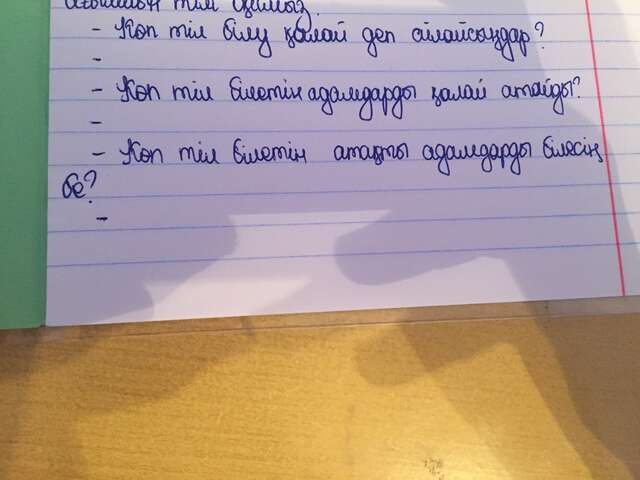 - Көп тіл білу қалай деп ойлайсыңдар?
-
- Көп тіл білетін адамдарды қалай атайды?
-
- Көп тіл білетін атақты адамдарды білесің
бе?
-